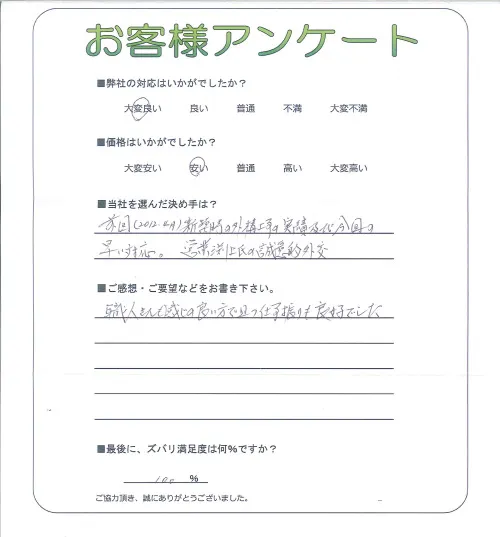 お客様アンケート
■弊社の対応はいかがでしたか？
大変良い 良い 普通 不満 大変不満
■価格はいかがでしたか？
大変安い 安い 普通 高い 大変高い
■当社を選んだ決め手は？
前回(2012.4月)新築時の外構工事の実績及び今回の
早い対応。営業 氏の誠意的外交
■ご感想・ご要望などをお書き下さい。
職人さんも感じの良い方で且つ仕事振りも良好でした
■最後に、ズバリ満足度は何%ですか？
100 %
ご協力頂き、誠にありがとうございました。